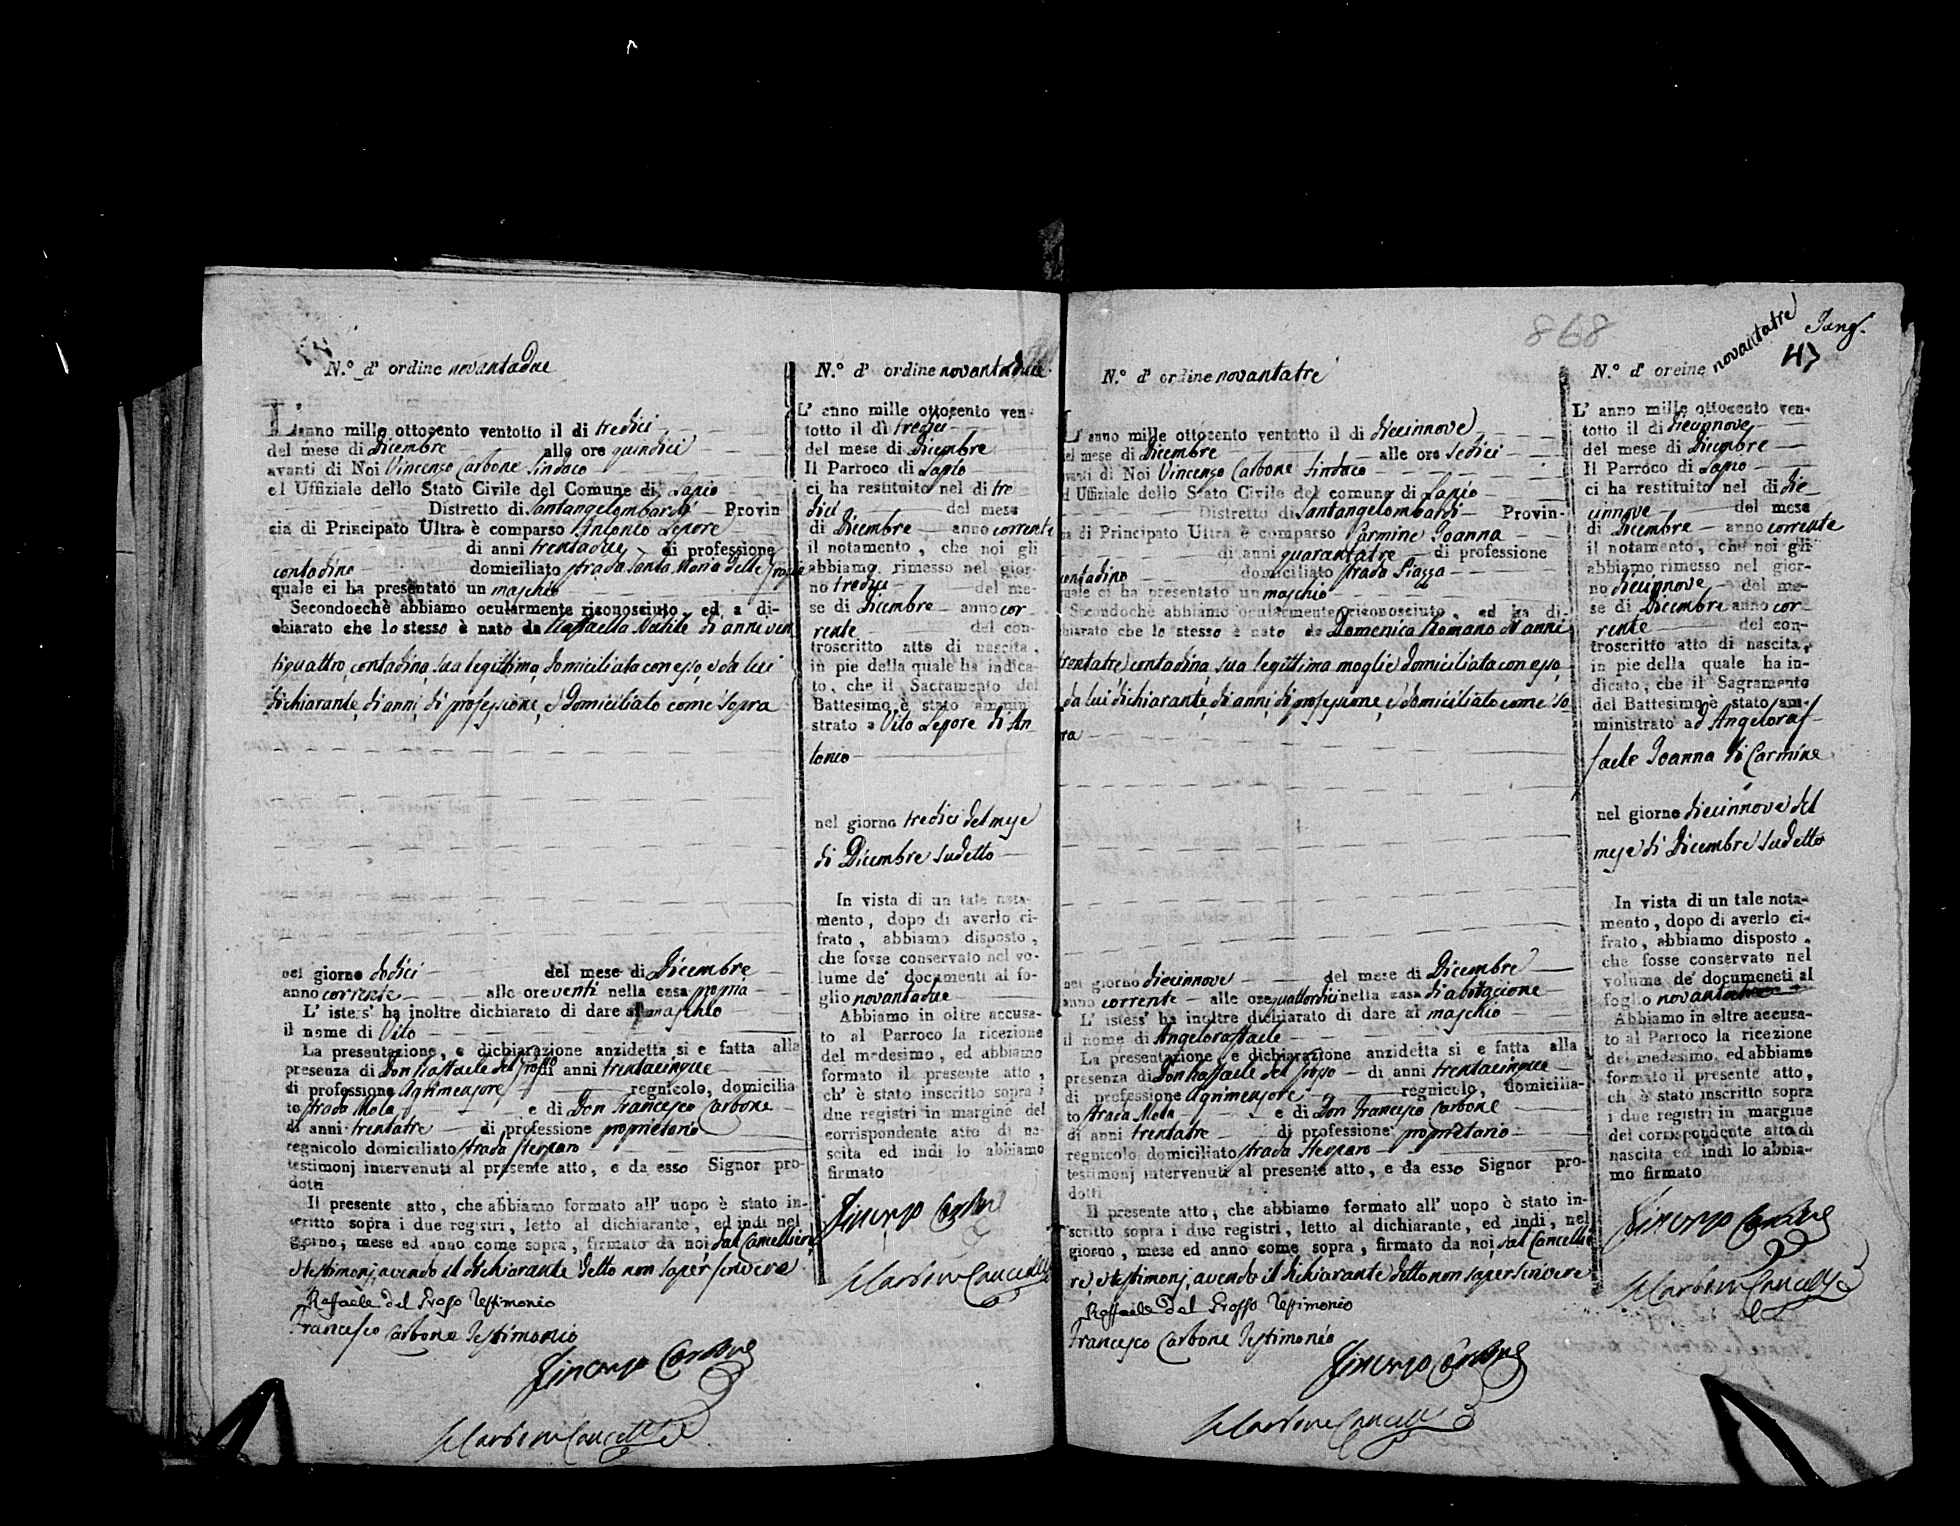 N.º d' ordine novantadue
L'anno mille ottocento ventotto il di tredici
del mese di Dicembre alle ore quindici
avanti di Noi Vincenzo Carbone Sindaco
ed Uffiziale dello Stato Civile del Comune di Lapio
Distretto di Santangelombardi Provin
cia di Principato Ultra è comparso Antonio Lepore
di anni trentadue di professione
contadino domiciliato strada Santa Maria delle
quale ci ha presentato un maschio
Secondocchè abbiamo ocularmente riconosciuto, ed a di-
chiarato che lo stesso è nato da Raffaella Natile di anni ven
tiquattro, contadina, sua legittima, domiciliata con esso, e da lui
dichiarante, di anni, di professione, e domiciliato come sopra
nel giorno dodici del mese di Dicembre
anno corrente alle ore venti nella casa propria
L' istess' ha inoltre dichiarato di dare al maschio
il nome di Vito
La presentazione, e dichiarazione anzidetta si e fatta alla
presenza di Don Raffaele del Grosso di anni trentacinque
di professione Agrimensore regnicolo, domicilia
to strada Mola e di Don Francesco Carbone
di anni trentatre di professione proprietario
regnicolo domiciliato strada
testimonj intervenuti al presente atto, e da esso Signor pro-
dotti
Il presente atto, che abbiamo formato all' uopo è stato in-
scritto sopra i due registri, letto al dichiarante, ed indi nel
giorno, mese ed anno come sopra, firmato da noi, dal Cancelliere,
e testimonj, avendo il dichiarante detto non saper scrivere
Raffaele del Grosso Testimonio
Francesco Carbone Testimonio
Vincenzo Carbone
Carbone Cancell
N.º d' ordine novantadue
L' anno mille ottocento ven-
totto il dì tredici
del mese di Dicembre
Il Parroco di Lapio
ci ha restituito nel di tre
dici del mese
di Dicembre anno corrente
il notamento, che noi gli
abbiamo rimesso nel gior-
no tredici del me-
se di Dicembre anno cor
rente del con-
troscritto atto di nascita,
in pie della quale ha indica-
to, che il Sacramento del
Battesimo è stato ammin
strato a Vito Lepore di An
tonio
nel giorno tredici del mese
di Dicembre sudetto
In vista di un tale nota-
mento, dopo di averlo ci-
frato, abbiamo disposto,
che fosse conservato nel vo-
lume de' documenti al fo-
glio novantadue
Abbiamo in oltre accusa-
to al Parroco la ricezione
del medesimo, ed abbiamo
formato il presente atto,
ch' è stato inscritto sopra i
due registri in margine del
corrispondente atto di na-
scita ed indi lo abbiamo
firmato
Vincenzo Carbone
Carbone Cancell
868
N.º d' ordine novantatrè
L' anno mille ottocento ventotto il di diecinnove
del mese di Dicembre alle ore sedici
avanti di Noi Vincenzo Carbone Sindaco
ed Uffiziale dello Stato Civile del comune di Lapio
Distretto di Santangelombardi Provin-
cia di Principato Ultra è comparso Carmine Joanna
di anni quarantatre di professione
contadino domiciliato strada Piazza
quale ci ha presentato un maschio
Secondochè abbiamo ocularmente riconosciuto, ed ha di-
chiarato che lo stesso è nato da Domenica Romano di anni
trentatre, contadina, sua legittima moglie domiciliata con esso,
da lui dichiarante, di anni, di professione, e domiciliato come so
ra
nel giorno diecinnove del mese di Dicembre
anno corrente alle ore quattordici nella casa di abitazione
L' istess' ha inoltre dichiarato di dare al maschio
il nome di Angeloraffaele
La presentazione, e dichiarazione anzidetta si e fatta alla
presenza di Don Raffaele del Grosso di anni trentacinque
di professione Agrimensore regnicolo, domicilia-
to strada Mola e di Don Francesco Carbone
di anni trentatre di professione proprietario
regnicolo domiciliato strada
testimonj intervenuti al presente atto, e da esso Signor pro-
dotti
Il presente atto, che abbiamo formato all' uopo è stato in-
scritto sopra i due registri, letto al dichiarante, ed indi, nel
giorno, mese ed anno come sopra, firmato da noi, dal Cancellie
re, e testimonj, avendo il dichiarante detto non saper scrivere
Raffaele del Grosso Testimonio
Francesco Carbone Testimonio
Vincenzo Carbone
Carbone Cancell
N.º d' oreine novantatre
L' anno mille ottocento ven-
totto il di diecinnove
del mese di Dicembre
Il Parroco di Lapio
ci ha restituito nel di die
cinnove del mese
di Dicembre anno corrente
il notamento, che noi gli
abbiamo rimesso nel gior-
no diecinnove del me-
se di Dicembre anno cor
rente del con-
troscritto atto di nascita,
in pie della quale ha in-
dicato, che il Sagramento
del Battesimo è stato am-
ministrato ad Angeloraf
faele Joanna di Carmine
nel giorno diecinnove del
mese di Dicembre sudetto
In vista di un tale nota-
mento, dopo di averlo ci-
frato, abbiamo disposto,
che fosse conservato nel
volume de' documeneti al
foglio novantatre
Abbiamo in oltre accusa-
to al Parroco la ricezione
del medesimo, ed abbiamo
formato il presente atto,
ch è stato inscritto sopra
i due registri in margine
del corrispondente atto di
nascita ed indi lo abbia-
mo firmato
Vincenzo Carbone
Carbone Cancell